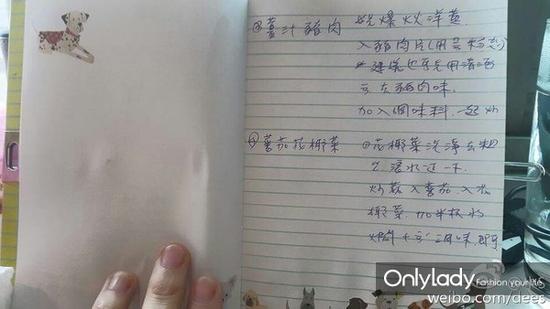 ③薑汁豬肉 先爆炒洋蔥
入豬肉片(用
*建議也可先用清酒
去豬肉味
加入調味料.一起炒
④蕃茄花椰菜 ①花椰菜洗淨去粗
滾水過一下.
入蕃茄.入花
椰菜.加半杯水
調味.即可
Onlylady Fashion your life
weibo.com/dees